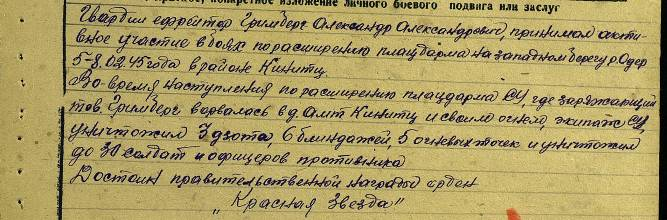 конкретное изложение личного боевого подвига или заслуг
Гвардии ефрейтор Гримберг Александр Александрович принимал акти-
вное участие в боях по расширению плацдарма на западном берегу р. Одер
5-8.02.45 года в районе Кинитц.
Во время наступления по расширению плацдарма СУ, где заряжающий
тов. Гримберг ворвалась в д. Амт Кинитц и своим огнем, экипаж СУ,
уничтожил 3 дзота, 6 блиндажей, 5 огневых точек и уничтожил
до 30 солдат и офицеров противника
Достоин правительственной награды орден
„Красная Звезда"